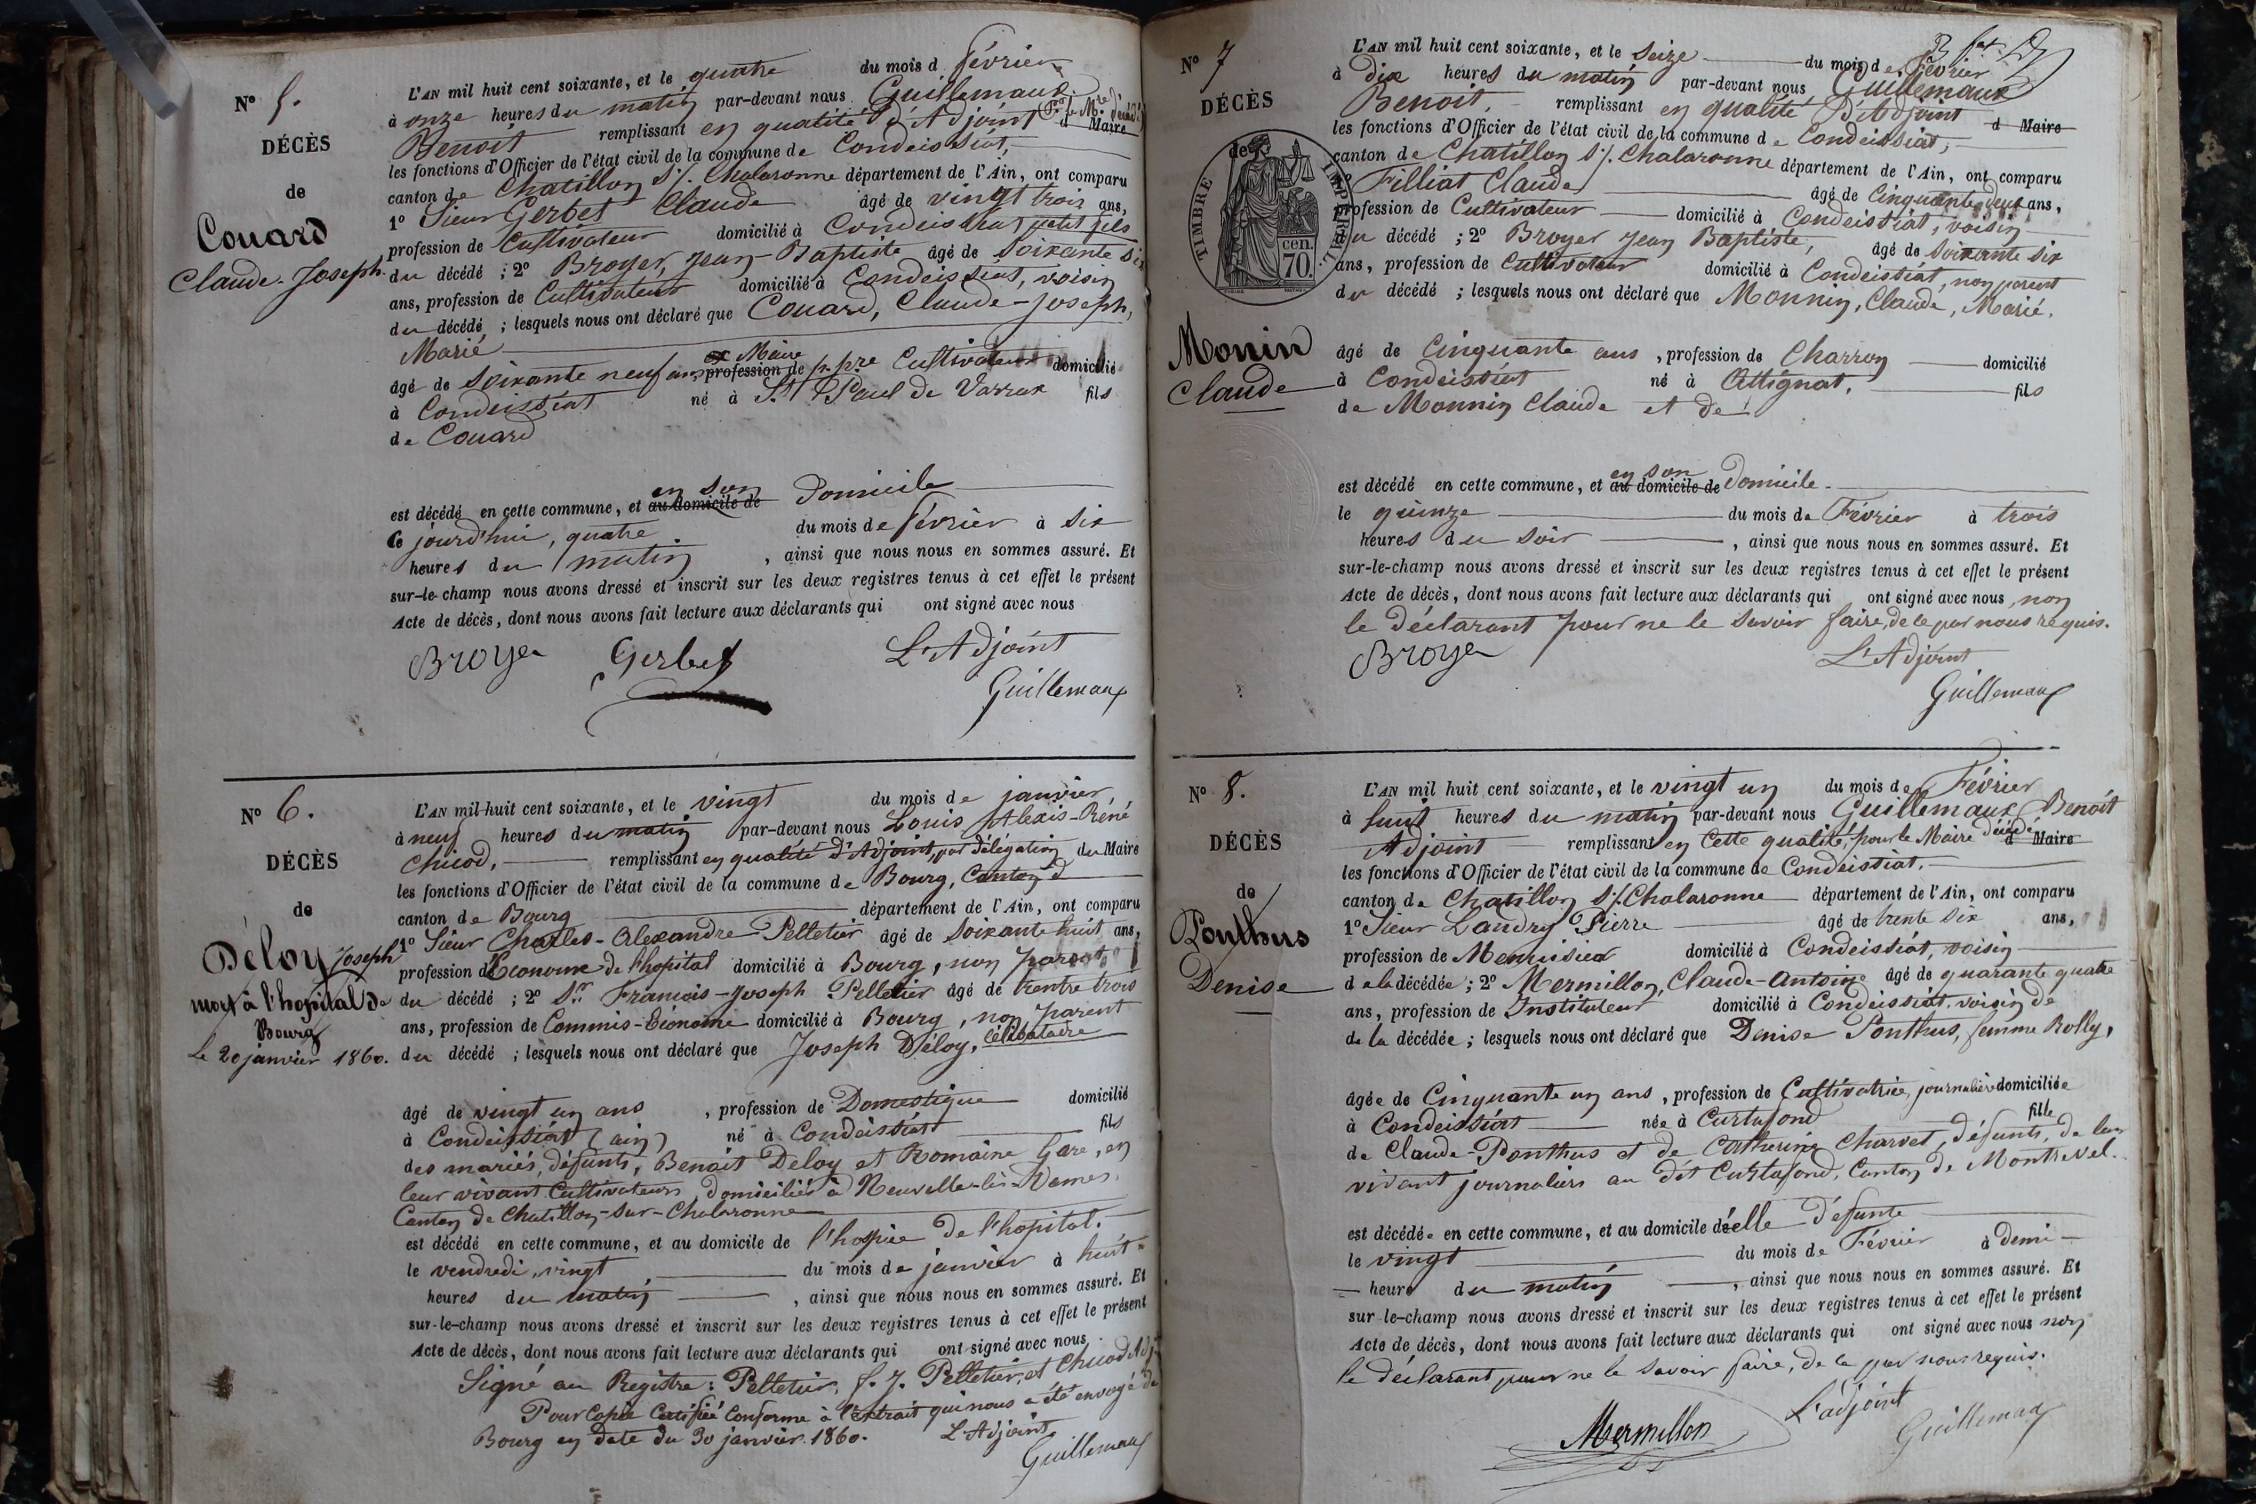 N° 5.
DÉCÈS
de
Couard
Claude-Joseph.
L'AN mil huit cent soixante, et le quatre du mois d février
à onze heures du matin par-devant nous Guillemaux
Benoit remplissant en qualité d'Adjoint d Maire
les fonctions d'Officier de l'état civil de la commune de Condeissiat,
canton de Chatillon s/. Chalaronne département de l'Ain, ont comparu
1° Sieur Gerbet Claude âgé de vingt trois ans,
profession de Cultivateur domicilié à Condeissiat petit fils
du décédé ; 2° Broyer, Jean-Baptiste âgé de soixante six
ans, profession de Cultivateur domicilié à Condeissiat, voisin
du décédé ; lesquels nous ont déclaré que Couard, Claude-Joseph,
Marié
ex Maire
âgé de soixante neuf ans profession de ppre Cultivateur domicilié
à Condeissiat né à St Paul de Varrax fils
de Couard
en son
est décédé en cette commune, et au domicile de Domicile
Ce jourd'hui, quatre du mois de février à six
heures du matin , ainsi que nous nous en sommes assuré. Et
sur-le-champ nous avons dressé et inscrit sur les deux registres tenus à cet effet le présent
Acte de décès, dont nous avons fait lecture aux déclarants qui ont signé avec nous
Broyer Gerbet L'Adjoint
Guillemaux
N° 6.
DÉCÈS
de
Déloy Joseph
mort à l'hopital de
Bourg
le 20 janvier 1860.
L'AN mil huit cent soixante, et le vingt du mois de janvier,
à neuf heures du matin par-devant nous Louis Alexis-Réné
Chicod, remplissant en qualité d'Adjoint, par délégation du Maire
les fonctions d'Officier de l'état civil de la commune de Bourg, Canton d
canton de Bourg département de l'Ain, ont comparu
1° Sieur Charles-Alexandre Pelletier âgé de soixante huit ans,
profession d'Econome de l'hopital domicilié à Bourg, non parent
du décédé ; 2° Sr. François-Joseph Pelletier âgé de trentre trois
ans, profession de Commis-Econome domicilié à Bourg, non parent
du décédé ; lesquels nous ont déclaré que Joseph Déloy, célibataire
âgé de vingt un ans , profession de Domestique domicilié
à Condeissiat (ain) né à Condeissiat fils
des mariés, défunts, Benoit Deloy et Romaine Gare, en
leur vivant Cultivateurs, domiciliés à Neuvelle-les-Dames,
Canton de Chatillon-sur-Chalaronne
est décédé en cette commune, et au domicile de l'hospice de l'hopital.
le vendredi, vingt du mois de janvier à huit
heures du matin , ainsi que nous nous en sommes assuré. Et
sur-le-champ nous avons dressé et inscrit sur les deux registres tenus à cet effet le présent
Acte de décès, dont nous avons fait lecture aux déclarants qui ont signé avec nous.
Signé au Registre : Pelletier, f. J. Pelletier, et Chicod Adj
Pour Copie Certifiée Conforme à l'extrait qui nous a été envoyé de
Bourg en date du 30 janvier 1860. L'Adjoint
Guillemaux
N° 7
DÉCÈS
de
TIMBRE IMPERIAL.
cen.
70.
Monin
Claude
L'AN mil huit cent soixante, et le seize du mois de Février
à dix heures du matin par-devant nous Guillemaux
Benoit, remplissant en qualité d'Adjoint d Maire
les fonctions d'Officier de l'état civil de la commune de Condeissiat,
canton de Chatillon s/. Chalaronne département de l'Ain, ont comparu
1° Filliat Claude âgé de Cinquante deux ans,
profession de Cultivateur domicilié à Condeissiat, voisin
du décédé ; 2° Broyer Jean Baptiste, âgé de soixante six
ans, profession de Cultivateur domicilié à Condeissiat, non parent
du décédé ; lesquels nous ont déclaré que Monnin, Claude, Marié.
âgé de Cinquante ans , profession de Charron domicilié
à Condeissiat né à Attignat, fils
de Monnin Claude et de
en son
est décédé en cette commune, et au domicile de Domicile.
le quinze du mois de Février à trois
heures du soir , ainsi que nous nous en sommes assuré. Et
sur-le-champ nous avons dressé et inscrit sur les deux registres tenus à cet effet le présent
Acte de décès, dont nous avons fait lecture aux déclarants qui ont signé avec nous, non
le déclarant pour ne le savoir faire, de ce par nous requis.
Broyer L'Adjoint
Guillemaux
N° 8.
DÉCÈS
de
Ponthus
Denise
L'AN mil huit cent soixante, et le vingt un du mois de Février
à huit heures du matin par-devant nous Guillemaux Benoit
Adjoint remplissant en Cette qualité, pour le Maire décédé d Maire
les fonctions d'Officier de l'état civil de la commune de Condeissiat,
canton de Chatillon s/. Chalaronne département de l'Ain, ont comparu
1° Sieur Landry Pierre âgé de trente six ans,
profession de Menuisier domicilié à Condeissiat, voisin
de la décédée ; 2° Mermillon, Claude-Antoine âgé de quarante quatre
ans, profession de Instituteur domicilié à Condeissiat, voisin de
de la décédée ; lesquels nous ont déclaré que Denise Ponthus, femme Rolly,
âgée de Cinquante un ans , profession de Cultivatrice, journalière domiciliée
à Condeissiat née à Curtafond fille
de Claude-Ponthus et de Catherine Charvet, défunts, de leur
vivant journaliers au dit Curtafond, Canton de Montrevel.
est décédée en cette commune, et au domicile d'elle défunte
le vingt du mois de Février à demi-
heure du matin , ainsi que nous nous en sommes assuré. Et
sur-le-champ nous avons dressé et inscrit sur les deux registres tenus à cet effet le présent
Acte de décès, dont nous avons fait lecture aux déclarants qui ont signé avec nous non
le déclarant pour ne le savoir faire, de ce par nous requis.
Mermillon L'adjoint
Guillemaux